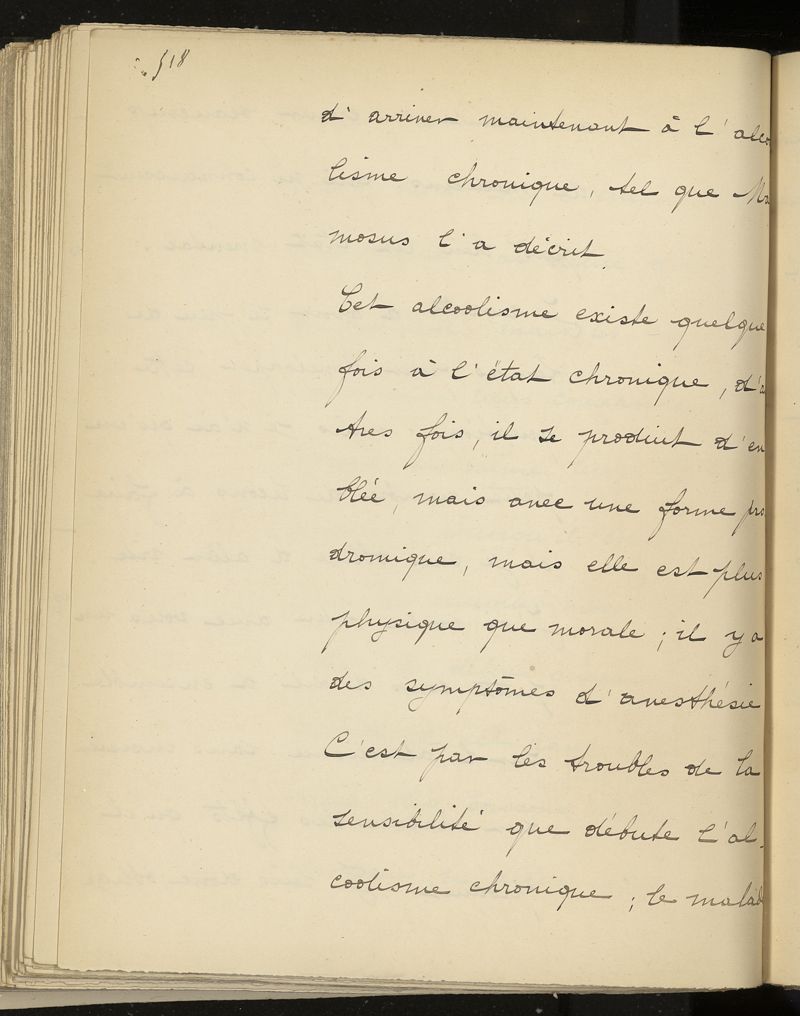 518
d'arriver maintenant à l'alco
lisme chronique, tel que Ma
mosus l'a décrit.
Cet alcoolisme existe quelque
fois à l'état chronique, d'a
tres fois, il se produit d'em
blée, mais avec une forme pro
dromique, mais elle est plus
physique que morale; il y a
des symptômes d'anesthésie
C'est par les troubles de la
sensibilité que débute l'al-
coolisme chronique; le malad